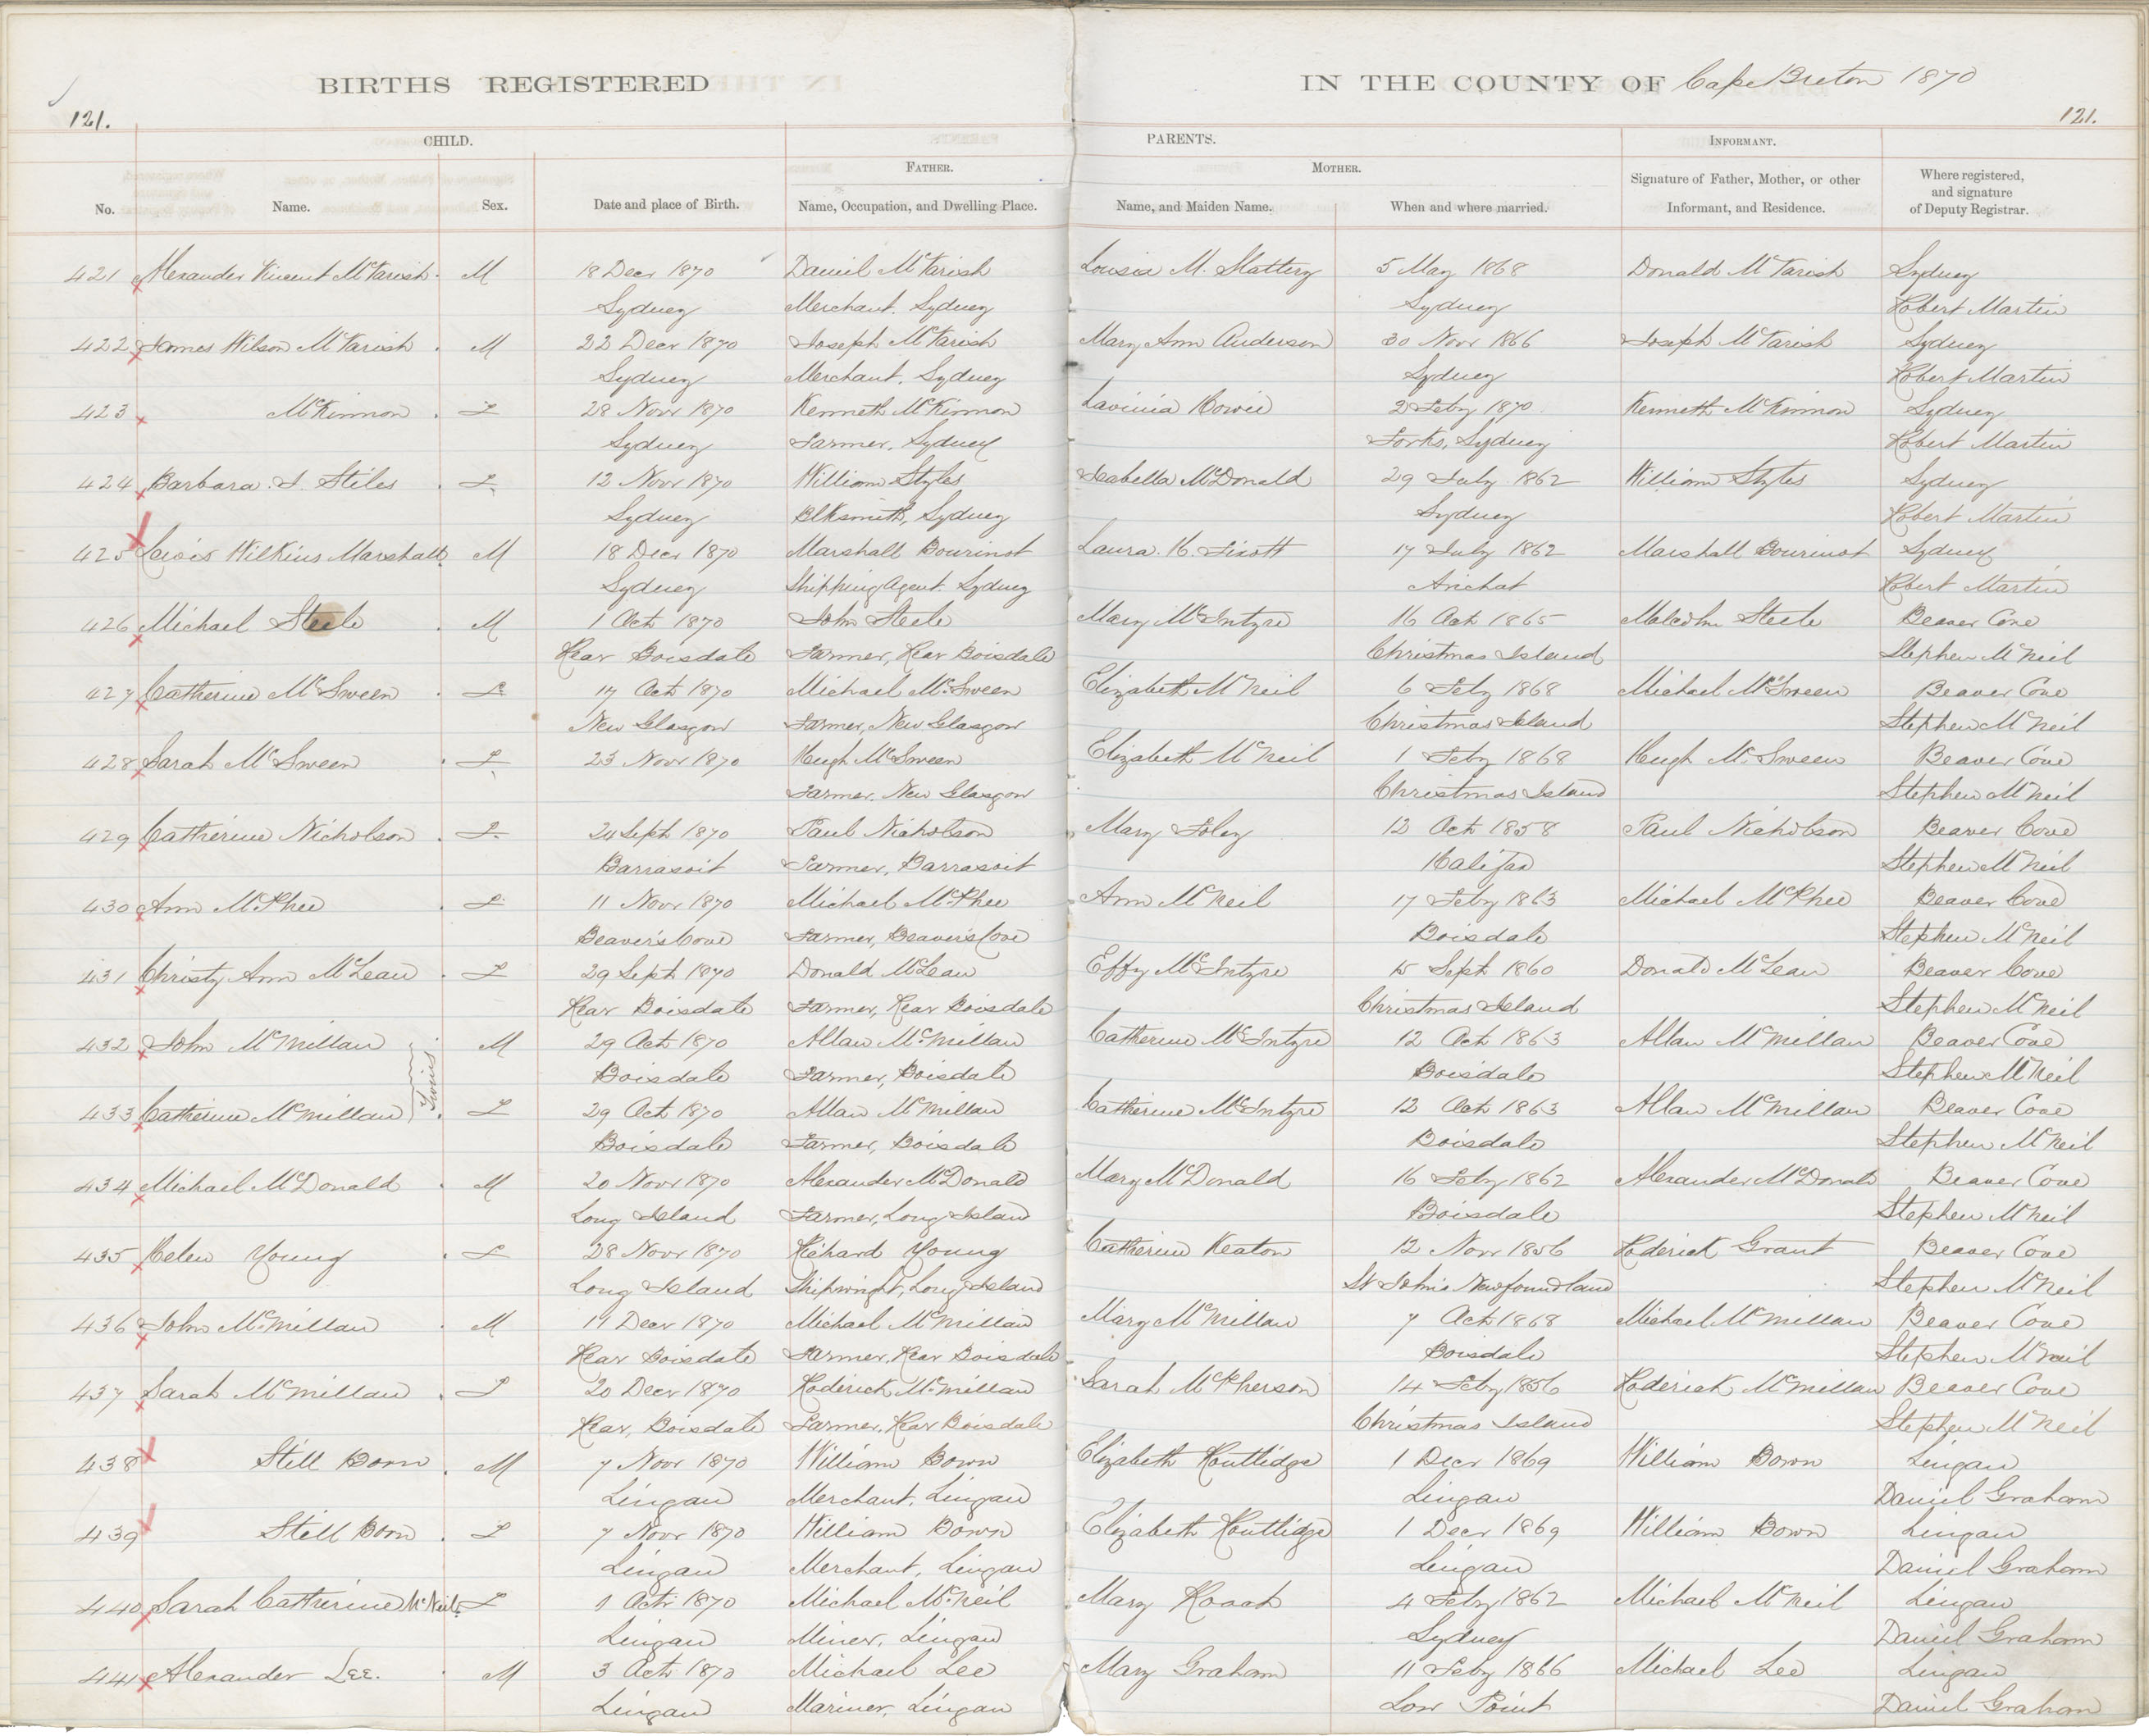 BIRTHS REGISTERED IN THE COUNTY OF Cape Breton 1870
121. 121.
CHILD. PARENTS. INFORMANT.
FATHER. MOTHER.
No. Name. Sex. Date and place of Birth. Name, Occupation, and Dwelling Place. Name, and Maiden Name. When and where married. Signature of Father, Mother, or other Informant, and Residence. Where registered, and signature of Deputy Registrar.
421 Alexander Vincent McTavish M 18 Decr 1870 Daniel McTavish Louisa M. Slattery 5 May 1868 Donald McTavish Sydney
Sydney Merchant. Sydney Sydney Robert Martin
422 James Wilson McTavish M 22 Decr 1870 Joseph McTavish Mary Ann Anderson 30 Novr 1866 Joseph McTavish Sydney
Sydney Merchant. Sydney Sydney Robert Martin
423 McKinnon F 28 Novr 1870 Kenneth McKinnon Lavinia Howie 2 Feby 1870 Kenneth McKinnon Sydney
Sydney Farmer, Sydney Forks, Sydney Robert Martin
424 Barbara. I. Stiles F 12 Novr 1870 William Styles Isabella McDonald 29 July 1862 William Styles Sydney
Sydney Blksmith, Sydney Sydney Robert Martin
425 Lewis Wilkins Marshall M 18 Decr 1870 Marshall Bourinot Laura. H. 17 July 1862 Marshall Bourinot Sydney
Sydney Shipping Agent. Sydney Arichat Robert Martin
426 Michael Steele M 1 Oct 1870 John Steele Mary McIntyre 16 Oct 1865 Malcolm Steele Beaver Cove
Rear Boisdale Farmer, Rear Boisdale Christmas Island Stephen McNeil
427 Catherine McSween F 17 Oct 1870 Michael McSween Elizabeth McNeil 6 Feby 1868 Michael McSween Beaver Cove
New Glasgow Farmer, New Glasgow Christmas Island Stephen McNeil
428 Sarah McSween F 23 Novr 1870 Hugh McSween Elizabeth McNeil 1 Feby 1868 Hugh McSween Beaver Cove
Farmer. New Glasgow Christmas Island Stephen McNeil
429 Catherine Nicholson F 24 Sept 1870 Paul Nicholson Mary Foley 12 Oct 1858 Paul Nicholson Beaver Cove
Barrasoit Farmer, Barrasoit Halifax Stephen McNeil
430 Ann McPhee F 11 Novr 1870 Michael McPhee Ann McNeil 17 Feby 1863 Michael McPhee Beaver Cove
Beaver's Cove Farmer, Beaver's Cove Boisdale Stephen McNeil
431 Christy Ann McLean F 29 Sept 1870 Donald McLean Effy McIntyre 15 Sept 1860 Donald McLean Beaver Cove
Rear Boisdale Farmer, Rear Boisdale Christmas Island Stephen McNeil
432 John McMillan M 29 Oct 1870 Allan McMillan Catherine McIntyre 12 Oct 1863 Allan McMillan Beaver Cove
Twins
Boisdale Farmer, Boisdale Boisdale Stephen McNeil
433 Catherine McMillan F 29 Oct 1870 Allan McMillan Catherine McIntyre 12 Oct 1863 Allan McMillan Beaver Cove
Boisdale Farmer, Boisdale Boisdale Stephen McNeil
434 Michael McDonald M 20 Novr 1870 Alexander McDonald Mary McDonald 16 Feby 1862 Alexander McDonald Beaver Cove
Long Island Farmer, Long Island Boisdale Stephen McNeil
435 Helen Young F 28 Novr 1870 Richard Young Catherine Keaton 12 Novr 1856 Roderick Grant Beaver Cove
Long Island Shipwright, Long Island St John's Newfoundland Stephen McNeil
436 John McMillan M 19 Decr 1870 Michael McMillan Mary McMillan 7 Oct 1868 Michael McMillan Beaver Cove
Rear Boisdale Farmer, Rear Boisdale Boisdale Stephen McNeil
437 Sarah McMillan F 20 Decr 1870 Roderick McMillan Sarah McPherson 14 Feby 1856 Roderick McMillan Beaver Cove
Rear, Boisdale Farmer, Rear Boisdale Christmas Island Stephen McNeil
438 Still Born M 7 Novr 1870 William Bown Elizabeth Routlidge 1 Decr 1869 William Bown Lingan
Lingan Merchant, Lingan Lingan Daniel Graham
439 Still Born F 7 Novr 1870 William Bown Elizabeth Routlidge 1 Decr 1869 William Bown Lingan
Lingan Merchant, Lingan Lingan Daniel Graham
440 Sarah Catherine McNeil F 1 Oct 1870 Michael McNeil Mary Roach 4 Feby 1862 Michael McNeil Lingan
Lingan Miner, Lingan Sydney Daniel Graham
441 Alexander Lee. M 3 Oct 1870 Michael Lee Mary Graham 11 Feby 1866 Michael Lee Lingan
Lingan Mariner, Lingan Low Point Daniel Graham